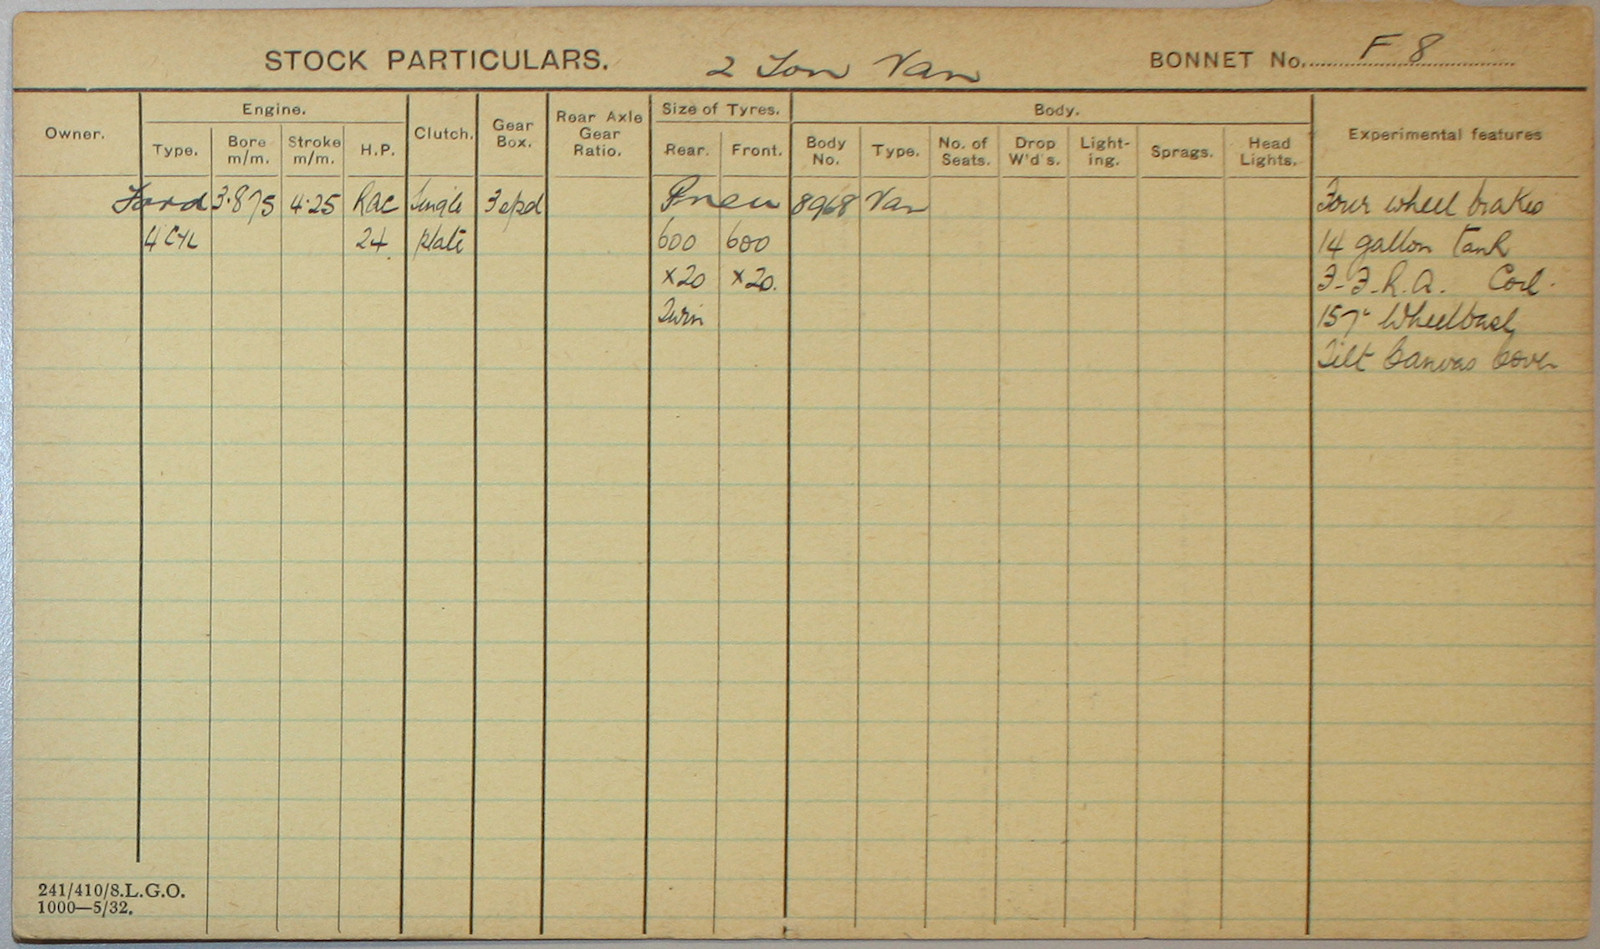 STOCK PARTICULARS. 2 Ton Van BONNET No. F 8
Owner. Engine. Clutch. Gear Box. Rear Axle Gear Ratio. Size of Tyres. Body. Experimental features
Type. Bore m/m. Stroke m/m. H.P. Rear. Front. Body No. Type. No. of Seats. Drop W'd's. Light-ing. Sprags. Head Lights.
Ford 3.875 4.25 RAC Single 3 spd Pneu 8968 Van Four wheel brakes
4 CYL 24 plate 600 600 14 gallon tank
x20 x20. 3-3-R.A. Coil.
Twin 157" Wheelbase
Tilt Canvas Cover
241/410/8.L.G.O.
1000—5/32.